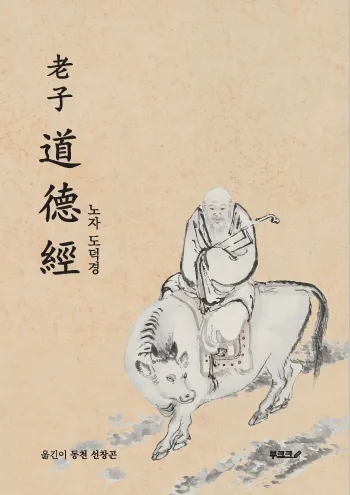 老子
道德經
노자 도덕경
옮긴이 동천 선창곤
부크크